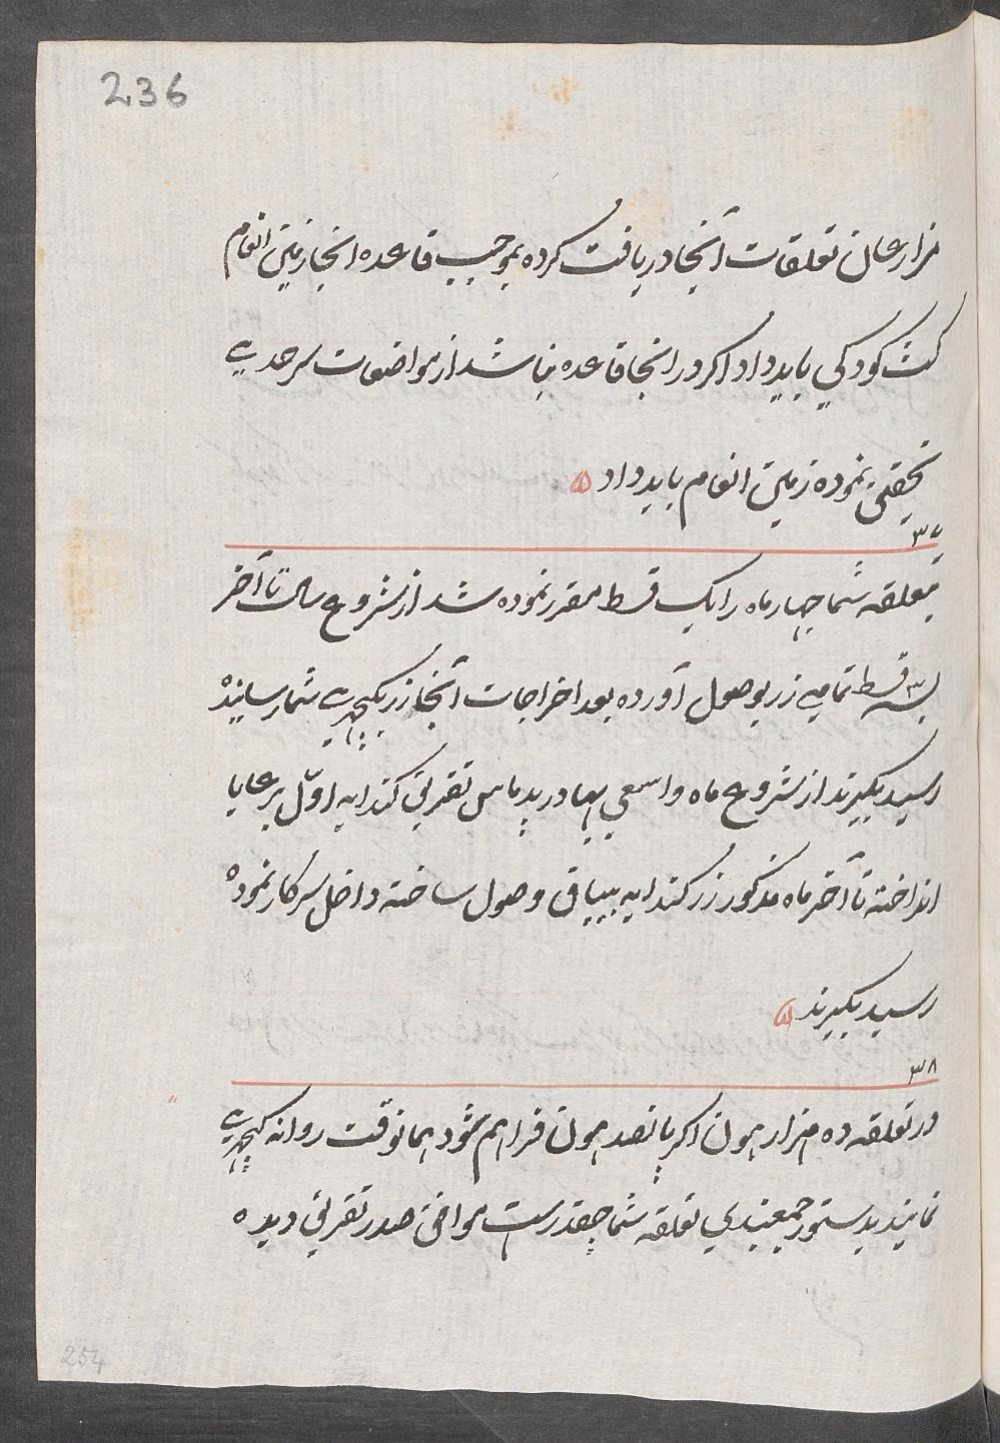 236
مزارعان تعلقات آنجا دریافت کرده بموجب قاعده انجا زمین انعام
کت کودکي باید داد اکر در انجا قاعده نباشد از مواضعات سرحدے
تحقیق نموده زمین انعام باید داد ۵
۳۷
تعلقه شما چهار ماه را یک قسط مقرر نموده شد از شروع سال تا آخر
سه قسط تمامے زر بوصول آورده بعد اخراجات آنجا زر بکچهرے شما رسانیده
رسید بکیرند از شروع ماه واسعي بهادر بدماس تفریق کندایه اوّل برعایا
انداخته تا آخر ماه مذکور زر کندایه بیباق وصول ساخته داخل سرکار نموده
رسید بکیرند ۵
۳۸
در تعلقه ده هزار هون اکر پانصد هون فراهم شود همانوقت روانه کچهرے
نمایند بدستور جمعبندي تعلقه شما چقدرست موافق صدر تفریق دیده
254